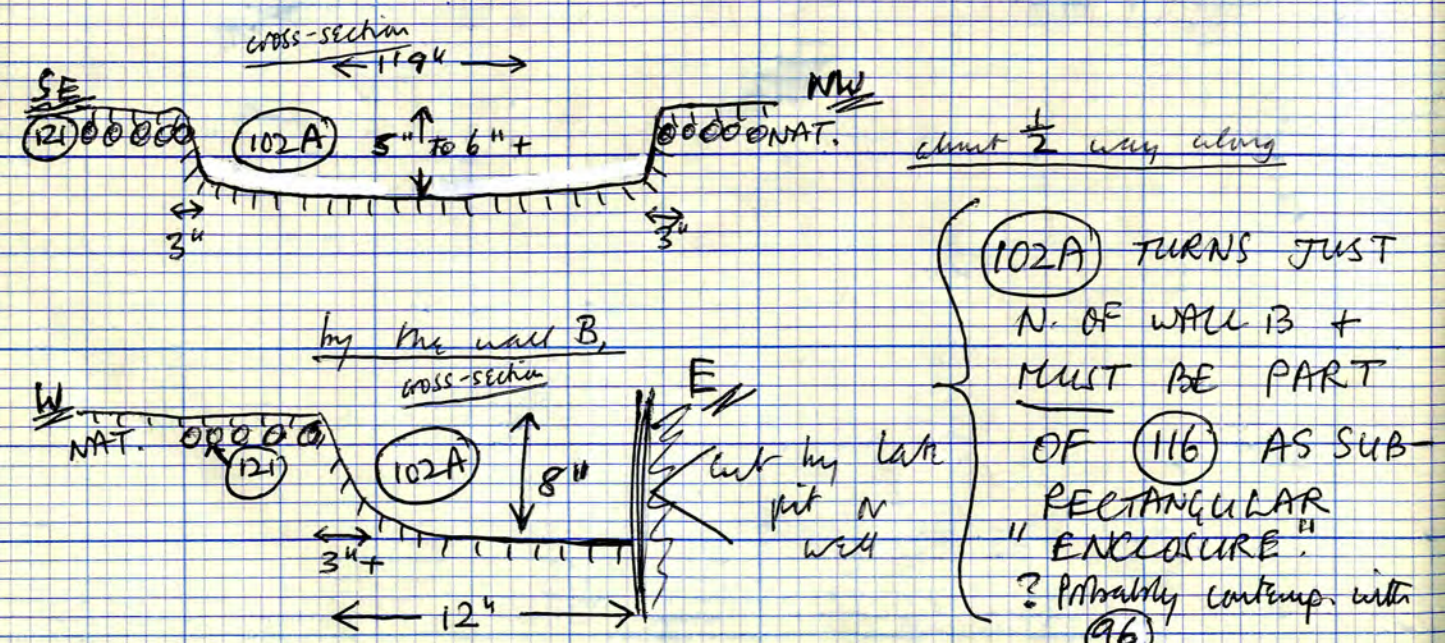 cross-section
1'9"
SE
NW
121
102A
5" TO 6"+
NAT.
about 1/2 way along
3"
3"
by the wall B,
cross-section
W
E
NAT.
121
102A
8"
cut by late
pit or
well
3"+
12"
102A TURNS JUST
N. OF WALL B +
MUST BE PART
OF 116 AS SUB-
RECTANGULAR
"ENCLOSURE".
? Probably contemp. with
96